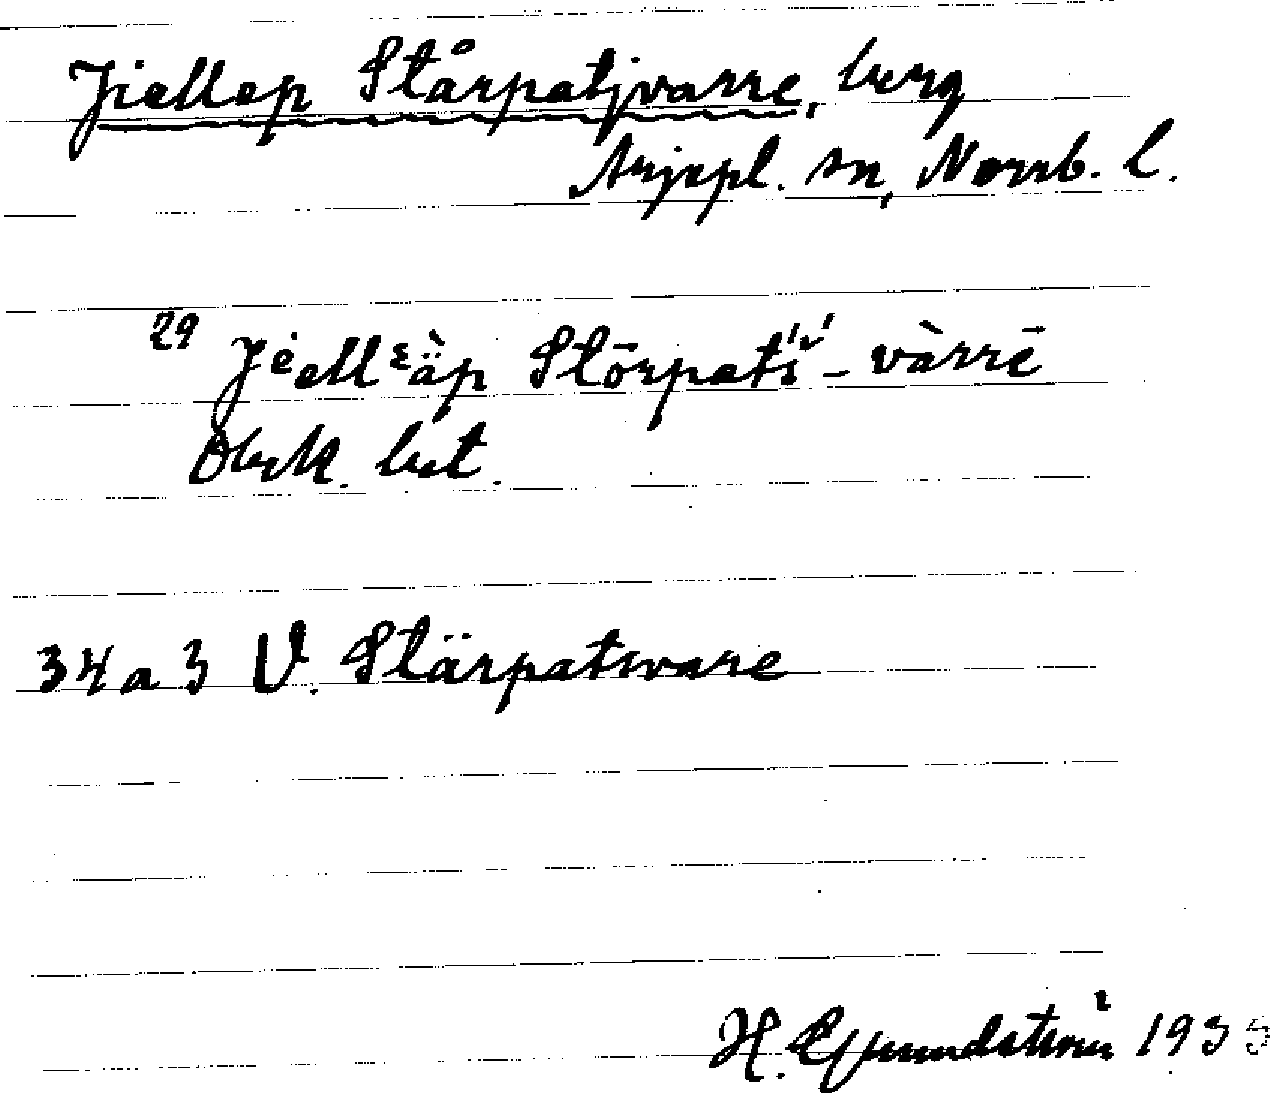 Jiellep Stårpatjvarre, berg
Arjepl. sn, Norrb. l.
29 Jiellᵋäp Stōrpats̀ - vàrrē
Obek. bet.
34 a 3 V. Stärpatsvare
H. Grundström 1935